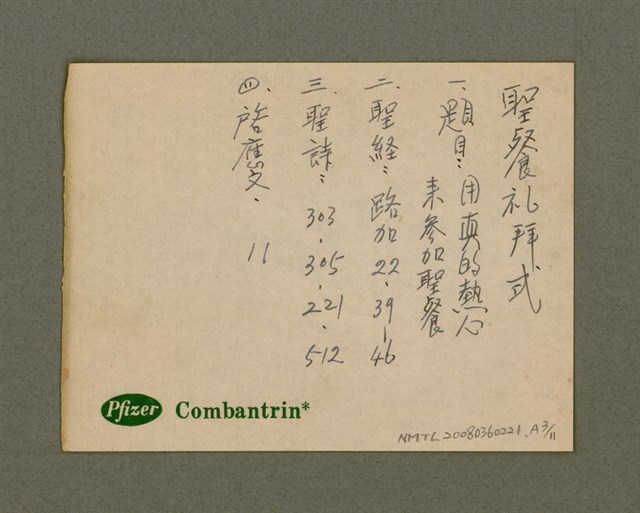 聖餐礼拜式
一、題目：用真的熱心
來參加聖餐
二、聖経：路加22、39-46
三、聖詩：303、305、221、512
四、啓應文、11
Pfizer Combantrin*
NMTL 20080360221、A3/11